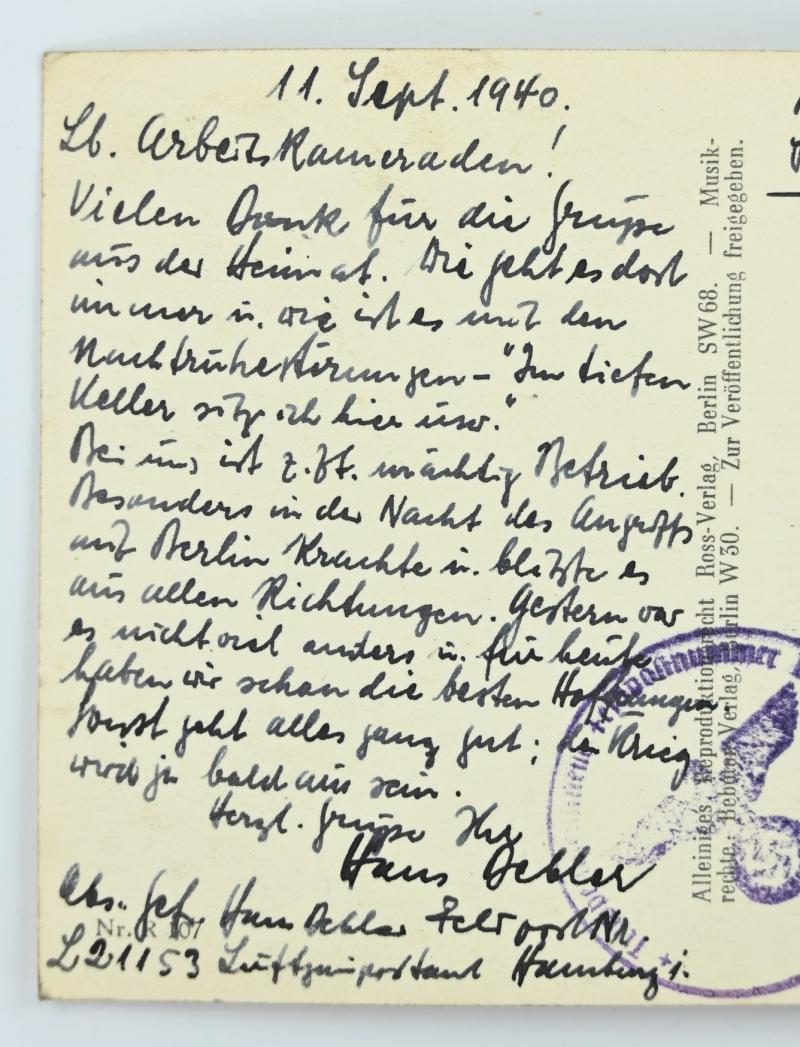 11. Sept. 1940.
Lb. Arbeitskameraden!
Vielen Dank für die Grüsse
aus der Heimat. Wie geht es dort
immer u. wie ist es mit den
Nachtruhestörungen – "Im tiefen
Keller sitz ich hier usw."
Bei uns ist z. Zt. mächtig Betrieb.
Besonders in der Nacht des Angriffs
auf Berlin krachte u. blitzte es
aus allen Richtungen. Gestern war
es nicht viel anders u. für heute
haben wir schon die besten Hoffnungen.
Sonst geht alles ganz gut; der Krieg
wird ja bald aus sein.
Herzl. Grüsse Ihr
Hans
Abs. Gef. Hans Feldpost Nr.
L 21153 Luftgaupostamt Hamburg 1.
Nr. R 107
Alleiniges Reproduktionsrecht Ross-Verlag, Berlin SW 68. — Musik-
rechte: Beboton Verlag, Berlin W 30. — Zur Veröffentlichung freigegeben.
Feldpostnummer